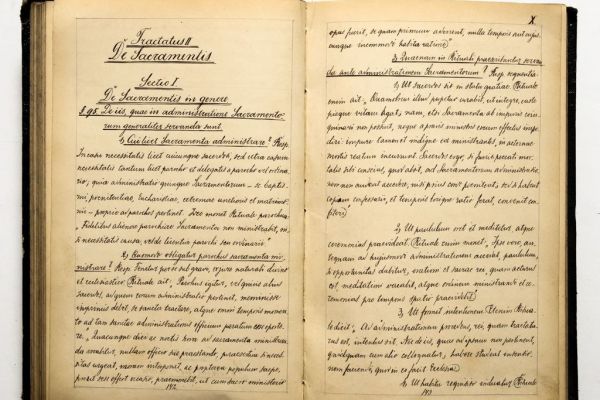 Tractatus II
De Sacramentis
Sectio I
De Sacramentis in genere
§ 95. De iis, quae in administratione Sacramento-
rum generaliter servanda sunt.
1) Cui licet Sacramenta administrare? Resp.
In casu necessitatis licet cuicunque sacerdoti, sed extra casum
necessitatis tantum licet parocho et delegatis a parocho vel ordina-
rio; quia administratio quinque Sacramentorum – sc. baptis-
mi, poenitentiae, Eucharistiae, extremae unctionis et matrimo-
nii – proprie ad parochos pertinet. Ita monet Rituale
"Fidelibus alienae parochiae Sacramenta non ministrabit, ni-
si necessitatis causa, vel de licentia parochi seu ordinarii"
2) Quomodo obligatur parochus sacramenta mi-
nistrare? Resp. Tenetur per se sub gravi, ex jure naturali divino
et ecclesiastico. Rituale ait: Parochus igitur, vel quivis alius
sacerdos, ad quem eorum administratio pertinet, meminisse
imprimis debet, se sancta tractare, atque omni temporis momen-
to ad tam sanctae administrationis officium paratum esse oporte-
re. Quacunque diei ac noctis hora ad sacramenta ministran-
da vocabitur, nullam officio suo praestando, praesertim si necessi-
tas urgeat, moram interponat, ac propterea populum saepe,
prout sese offeret occasio, praemonebit, ut cum sacro ministerio
192
X
opus fuerit, se quam primum advocent, nulla temporis aut cujus-
cunque incommodi habita ratione"
3) Quaenam in Rituali praescribuntur servan-
da ante administrationem Sacramentorum? Resp. sequentia:
1) Ut sacerdos sit in statu gratiae. Rituale
enim ait: Quamobrem illud parochus curabit, ut integre, caste
pieque vitam agat; nam, etsi Sacramenta ab impuris coin-
quinari non possint, neque a pravis ministris eorum effectus impe-
diri: impure tamen et indigne ea ministrantes, in aeternae
mortis reatum incurrunt. Sacerdos ergo, si fuerit peccati mor-
talis sibi conscius, quod absit, ad Sacramentorum administratio-
nem non audeat accedere, nisi prius corde poeniteat; sed si habeat
copiam confessarii, et temporis locique ratio ferat, convenit con-
fiteri
2) Ut paululum oret et meditetur atque
ceremonias praevideat. Rituale enim monet: Ipse vero, an-
tequam ad hujusmodi administrationem accedat, paululum,
si opportunitas dabitur, orationi et sacrae rei, quam acturus
est, meditationi vacabit, atque ordinem ministrandi et ce-
remonias pro temporis spatio praevidebit
3) Ut formet intentionem. Etenim Rituale
dicit: Ad administrationem procedens, rei, quam tractatu-
rus est, intentus sit. Nec de iis, quae ad ipsum non pertinent,
quidquam cum alio colloquatur, habere studeat intentio-
nem faciendi, quod in eo facit Ecclesia
4) Ut habitu requisito induatur. Rituale
193